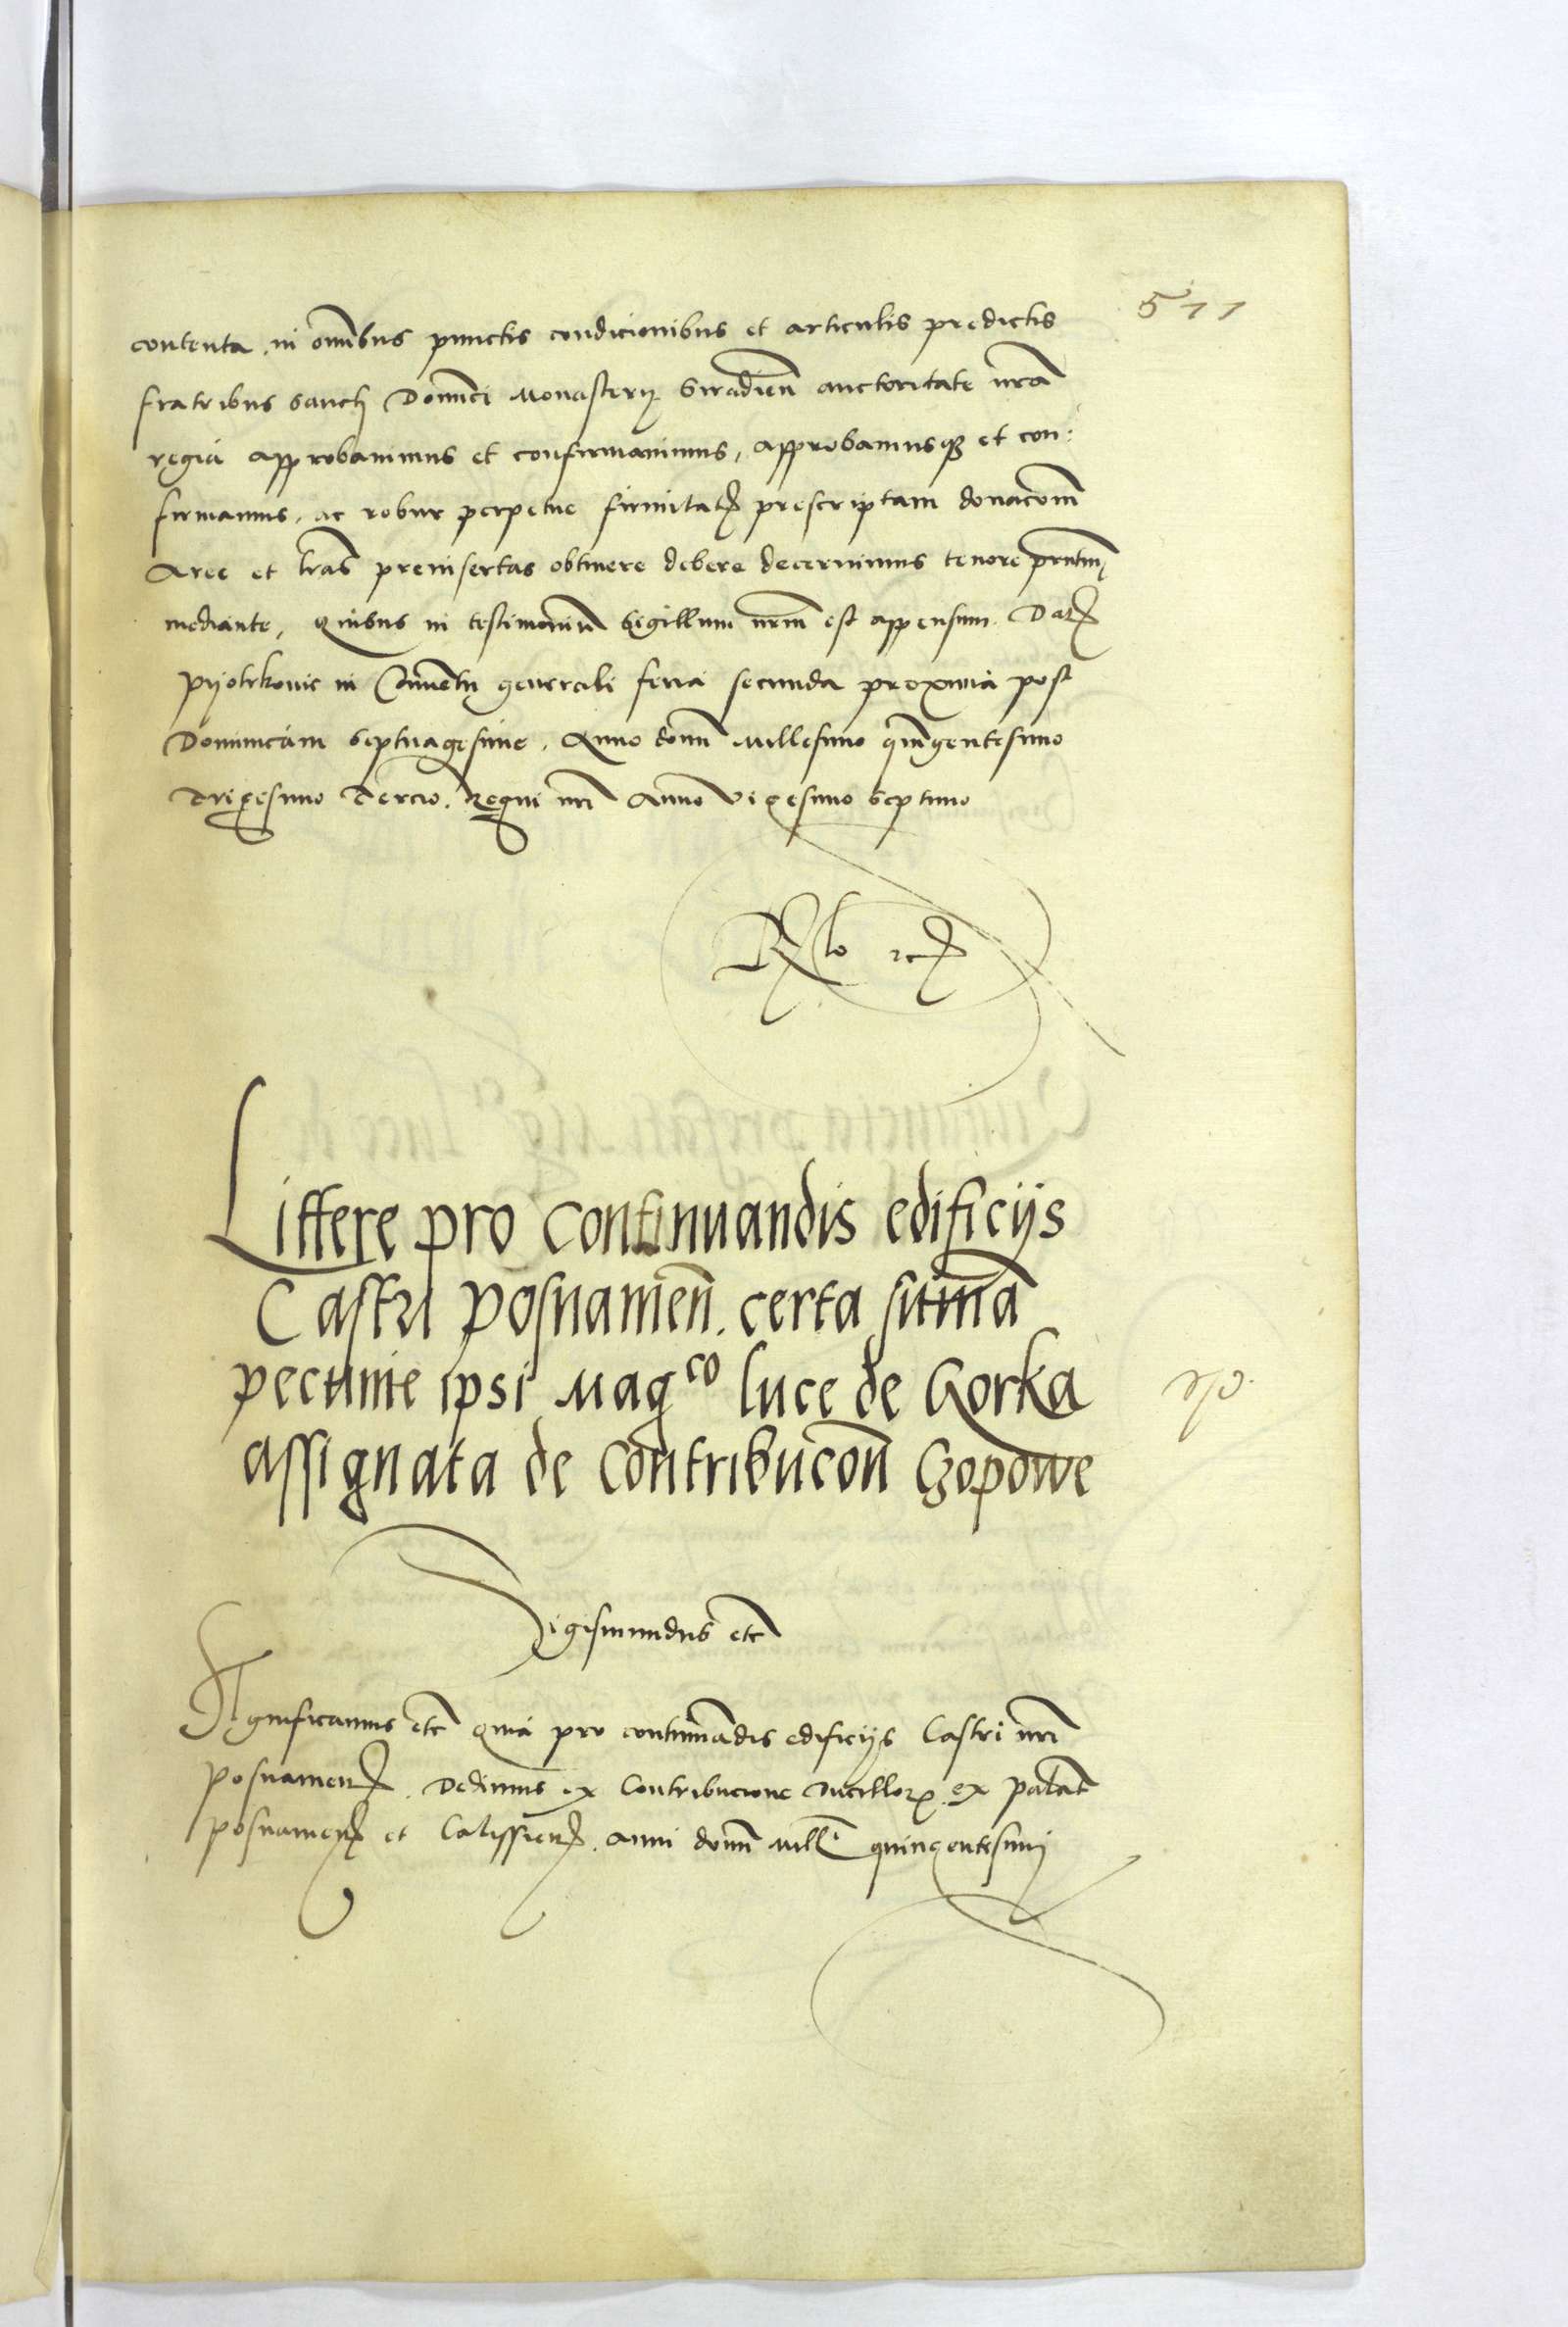 511
contenta, in omībus punctis condicionibus et articulis predictis
fratribus Sancti Domīci Monasterij Siradieñ auctoritate nrã
regia approbauimus et confirmauimus, approbamusq3 et con:
firmamus, ac robur perpetue firmitatꝭ prescriptam donacõm
Aree et lras preinsertas obtinere debere decernimus tenore prntiũ
mediante, Quibus in testimoniũ Sigillum nrm̃ est appensum. Datꝭ
Pyotrkouie in Cõuentu generali feria secunda proxima post
Dominicam Septuagesime. Anno domī Millesimo quĩgentesimo
Trigesimo Tercio. Regni nri Anno Vigesimo Septimo
Littere pro continuandis edificijs
Castri Posnamieñ. certa sum̃a
pecunie ipsi Magco luce de Gorka
assignata de contribucõn Czopowe
Sigismundus etc̃
Significamus etc̃ quia pro continuãdis edificijs Castri nri
Posnamienꝭ. Dedimus ex Contribucione Ducillorꝝ ex palat̃
Posnamienꝭ et Calissienꝭ. anni domī mill̃i quingentesimi